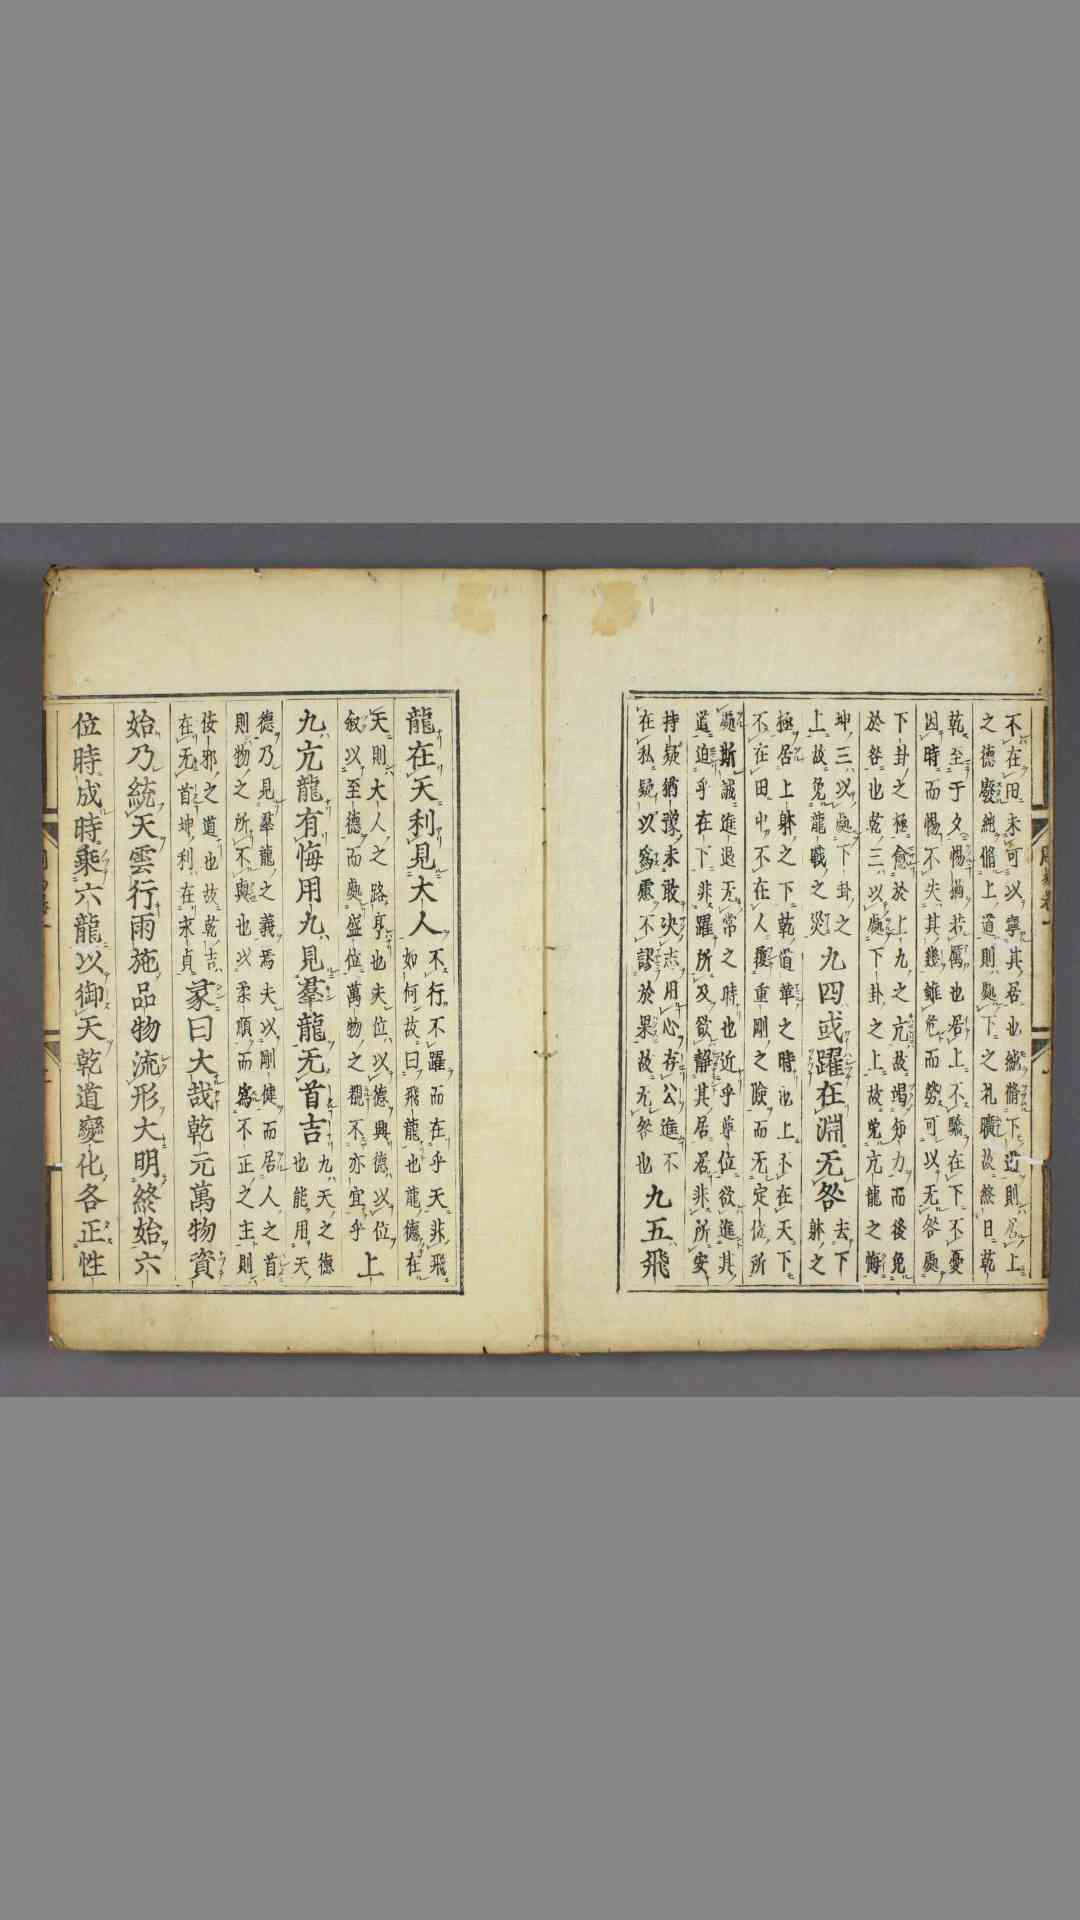 不在田未可以寧其居也純脩下道則居上
之德廢純脩上道則處下之礼曠故終日乾
乾至于夕惕猶若厲也居上不驕在下不憂
因時而惕不失其幾雖危而勞可以无咎處
下卦之極愈於上九之亢故竭知力而後免
於咎也乾三以處下卦之上故免亢龍之悔
坤三以處下卦之
上故免龍戰之災
九四或躍在淵无咎
去下
躰之
極居上躰之下乾道革之時也上不在天下
不在田中不在人履重剛之險而无定位所
處斯誠進退无常之時也近乎尊位欲進其
道迫乎在下非躍所及欲靜其居居非所安
持疑猶豫未敢決志用心存公進不
在私疑以爲慮不謬於果故无咎也
九五飛
龍在天利見大人
不行不躍而在乎天非飛
如何故曰飛龍也龍德在
天則大人之路亨也夫位以德興德以位
叙以至德而處盛位萬物之覩不亦宜乎
上
九亢龍有悔用九見羣龍无首吉
九天之德
也能用天
德乃見羣龍之義焉夫以剛健而居人之首
則物之所不與也以柔順而爲不正之主則
佞邪之道也故乾吉
在无首坤利在永貞
彖曰大哉乾元萬物資
始乃統天雲行雨施品物流形大明終始六
位時成時乘六龍以御天乾道變化各正性